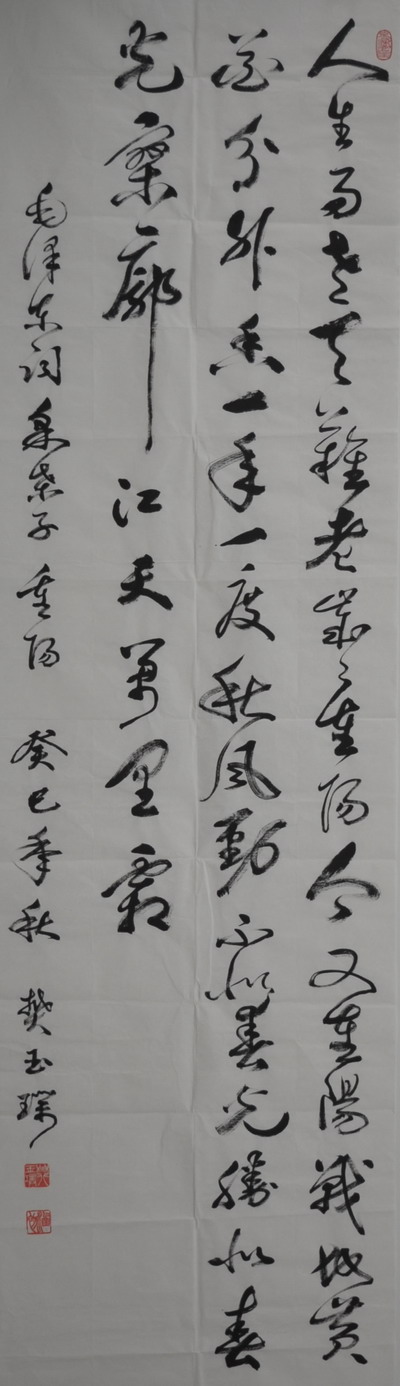 人生易老天難老歲々重阳今又重陽戰地黄
花分外香一年一度秋风勁不似春光勝似春
光寥廓江天萬里霜
毛泽东词采桑子重阳 癸巳年秋 樊玉